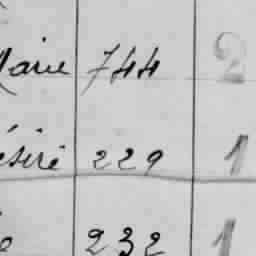 Marie 744 2
ésiré 229 1
e 232 1